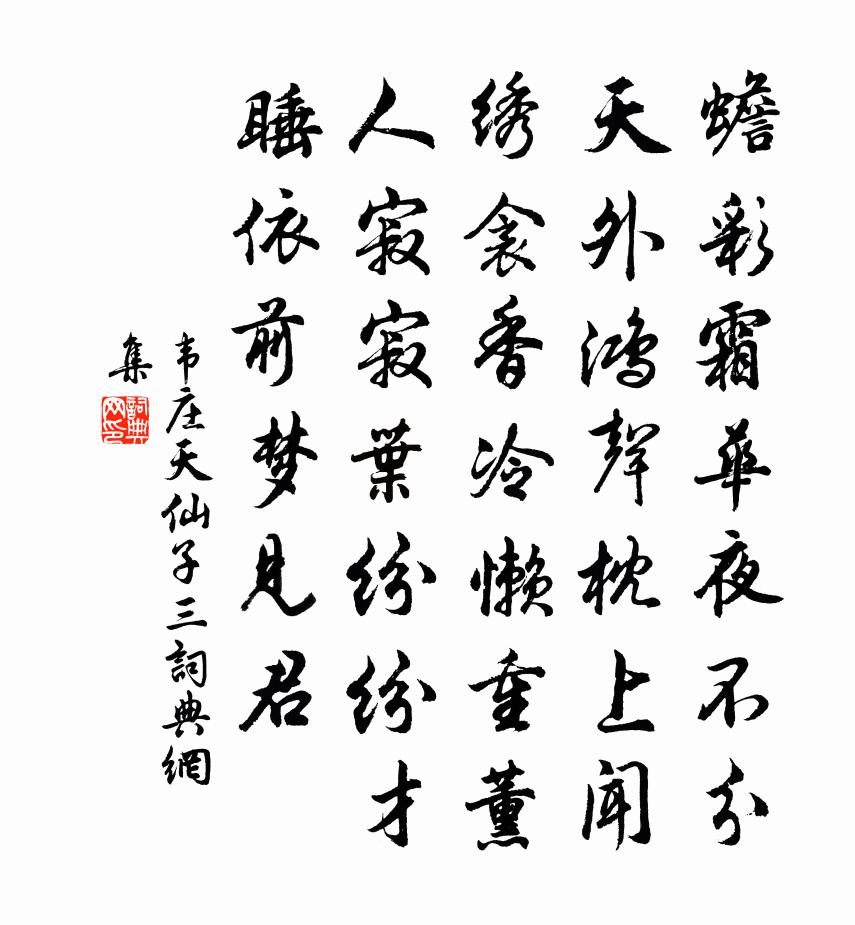 蟾彩霜華夜不分
天外鴻聲枕上聞
绣衾香冷懒重薰
人寂寂葉纷纷才
睡依前梦見君
韦庄天仙子三詞典網
集
詞典
网印